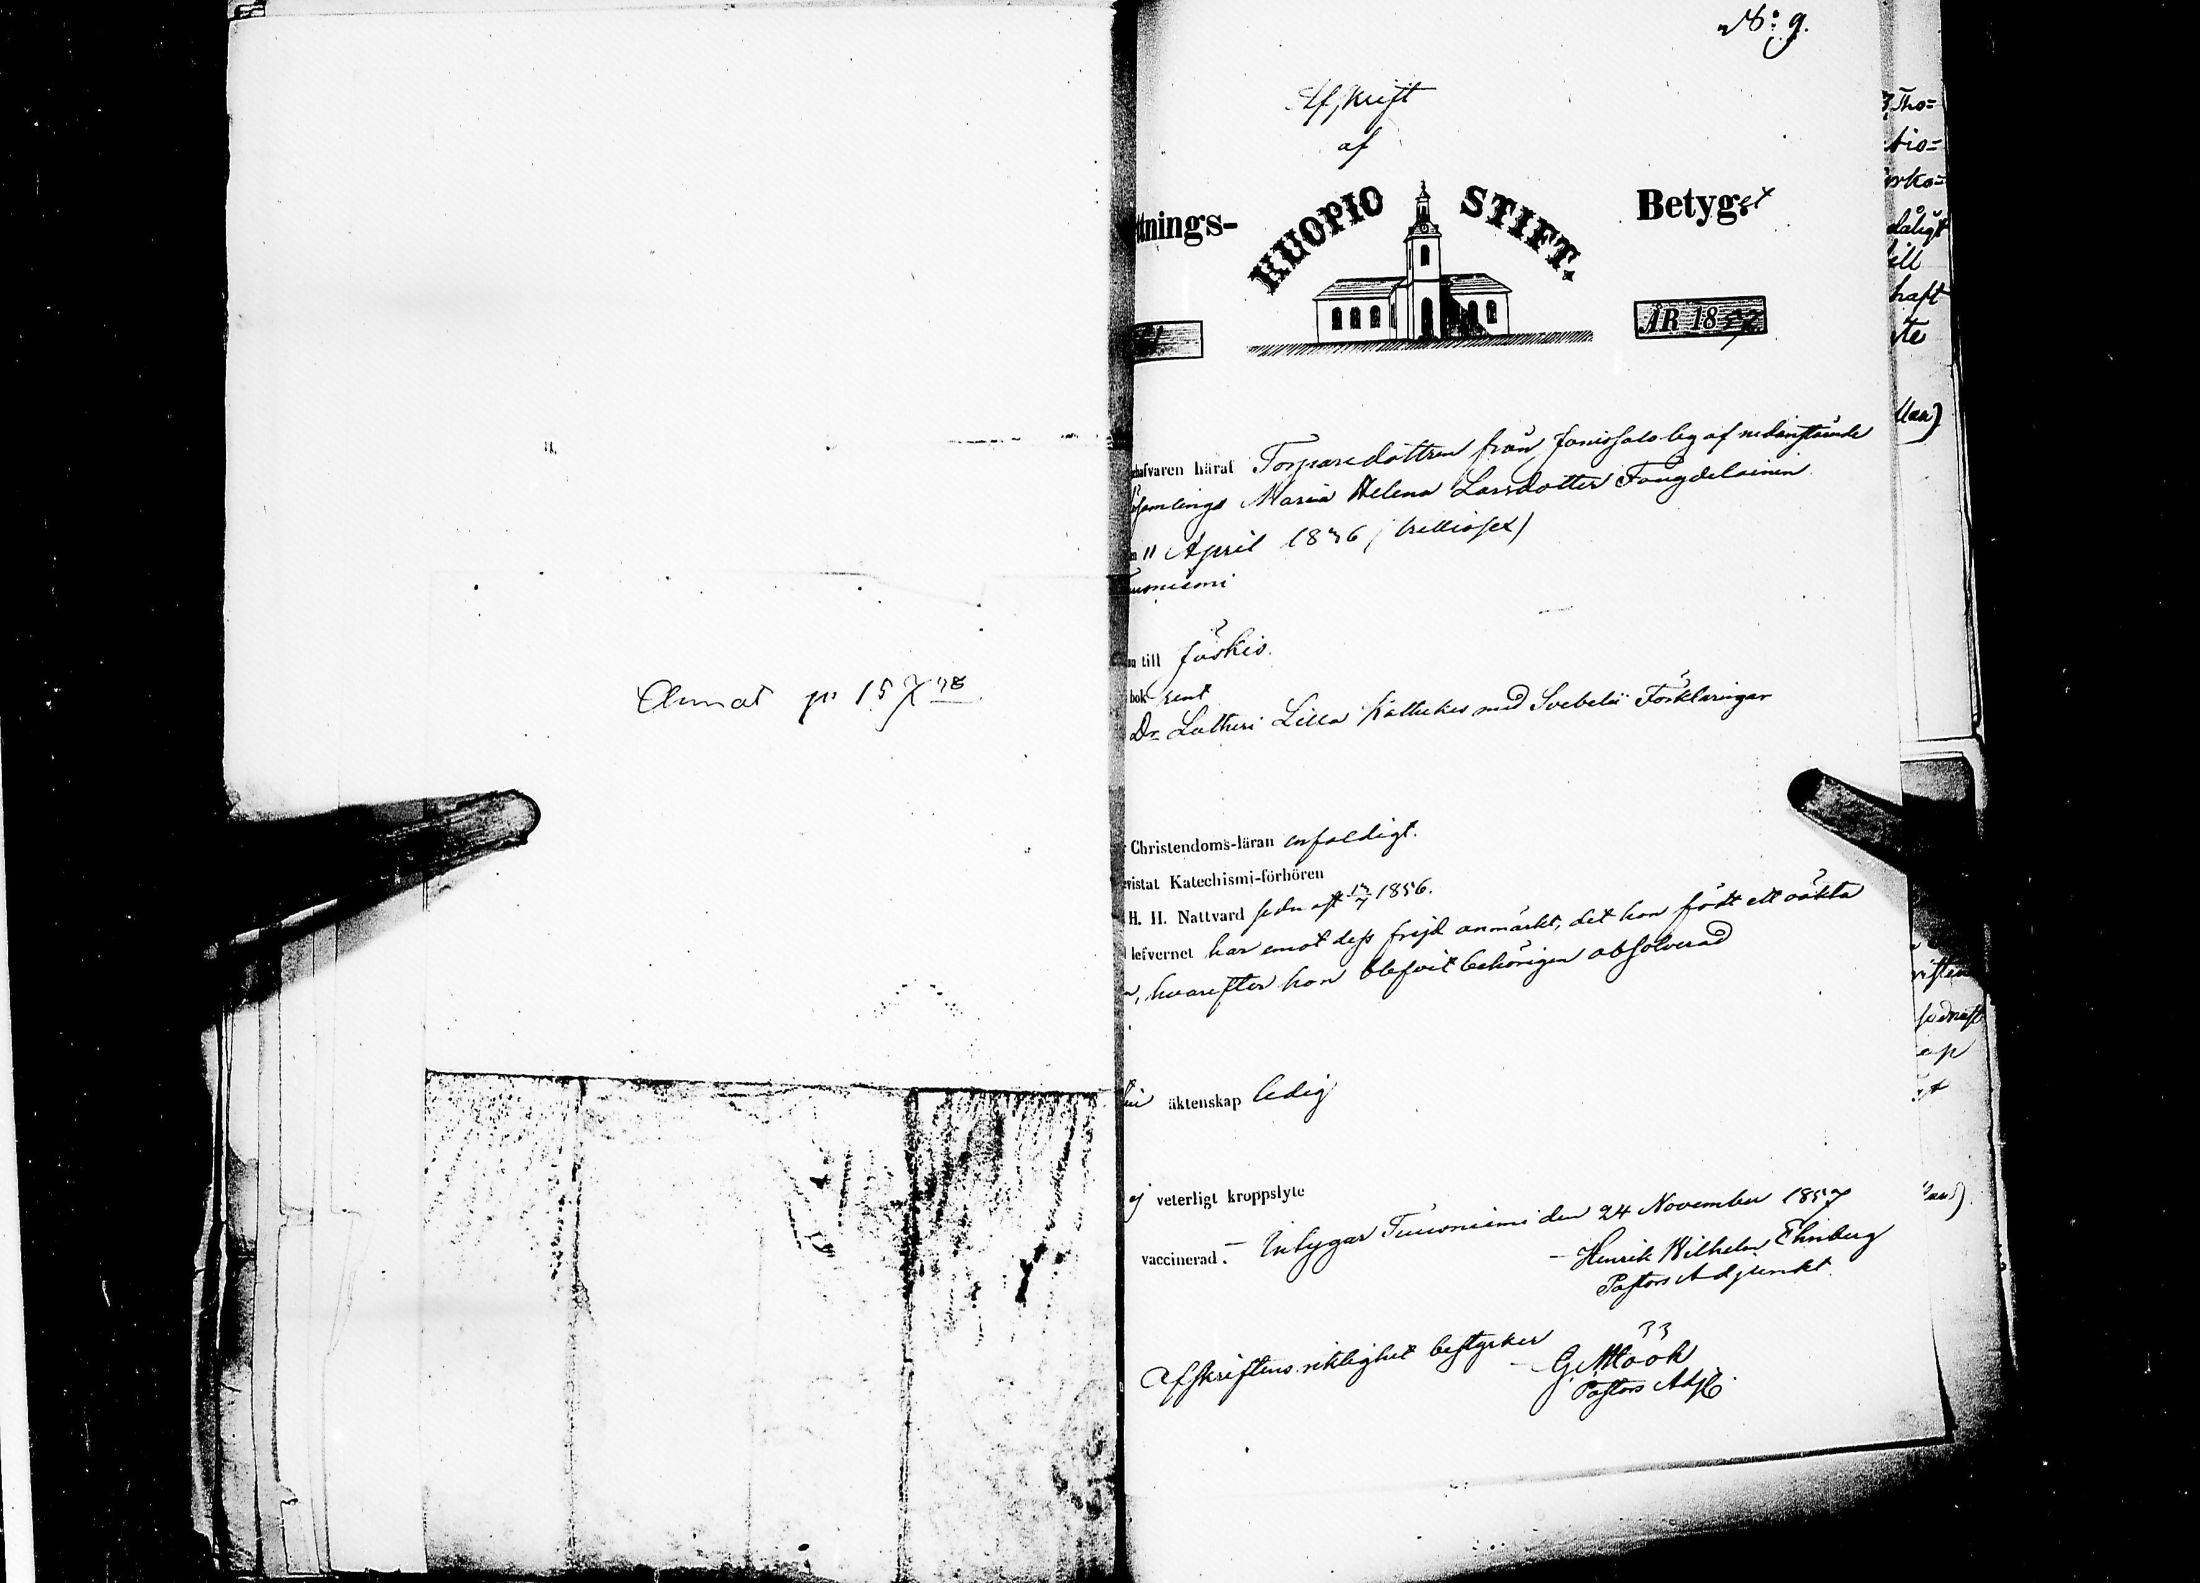 No: 9.
Afskrift
af
ttnings- KUOPIO STIFT. Betyg.et
ÅR 1857
nehafvaren häraf Torparedottren från Joniosalo by af nedanstående
församlings Maria Helena Larsdotter Fougdelainen
n 11 April 1836 (trettiosex)
uusniemi
n till Jääskis.
bok rent
Dr Lutheri Lilla Kattekes med Svebelii Förklaringar
Christendoms-läran enfaldigt.
evistat Katechismi-förhören
H. H. Nattvard sedn aft 13/7 1856.
lefvernet har emot dess frejd anmärkt, det hon födt ett oäkta
n, hvarefter hon blefvit behörigen absolverad
till äktenskap ledig
ej veterligt kroppslyte
vaccinerad. – Intygar Tuusniemi den 24 November 1857
– Henrik Wilhelm Ehnberg
Pastors Adjunkt.
Afskriftens riktighet bestyrker
G. Möök
Pastors Adj.
Annat pr 15
3 Tho=
tio=
rko=
dåligt
till
haft
te